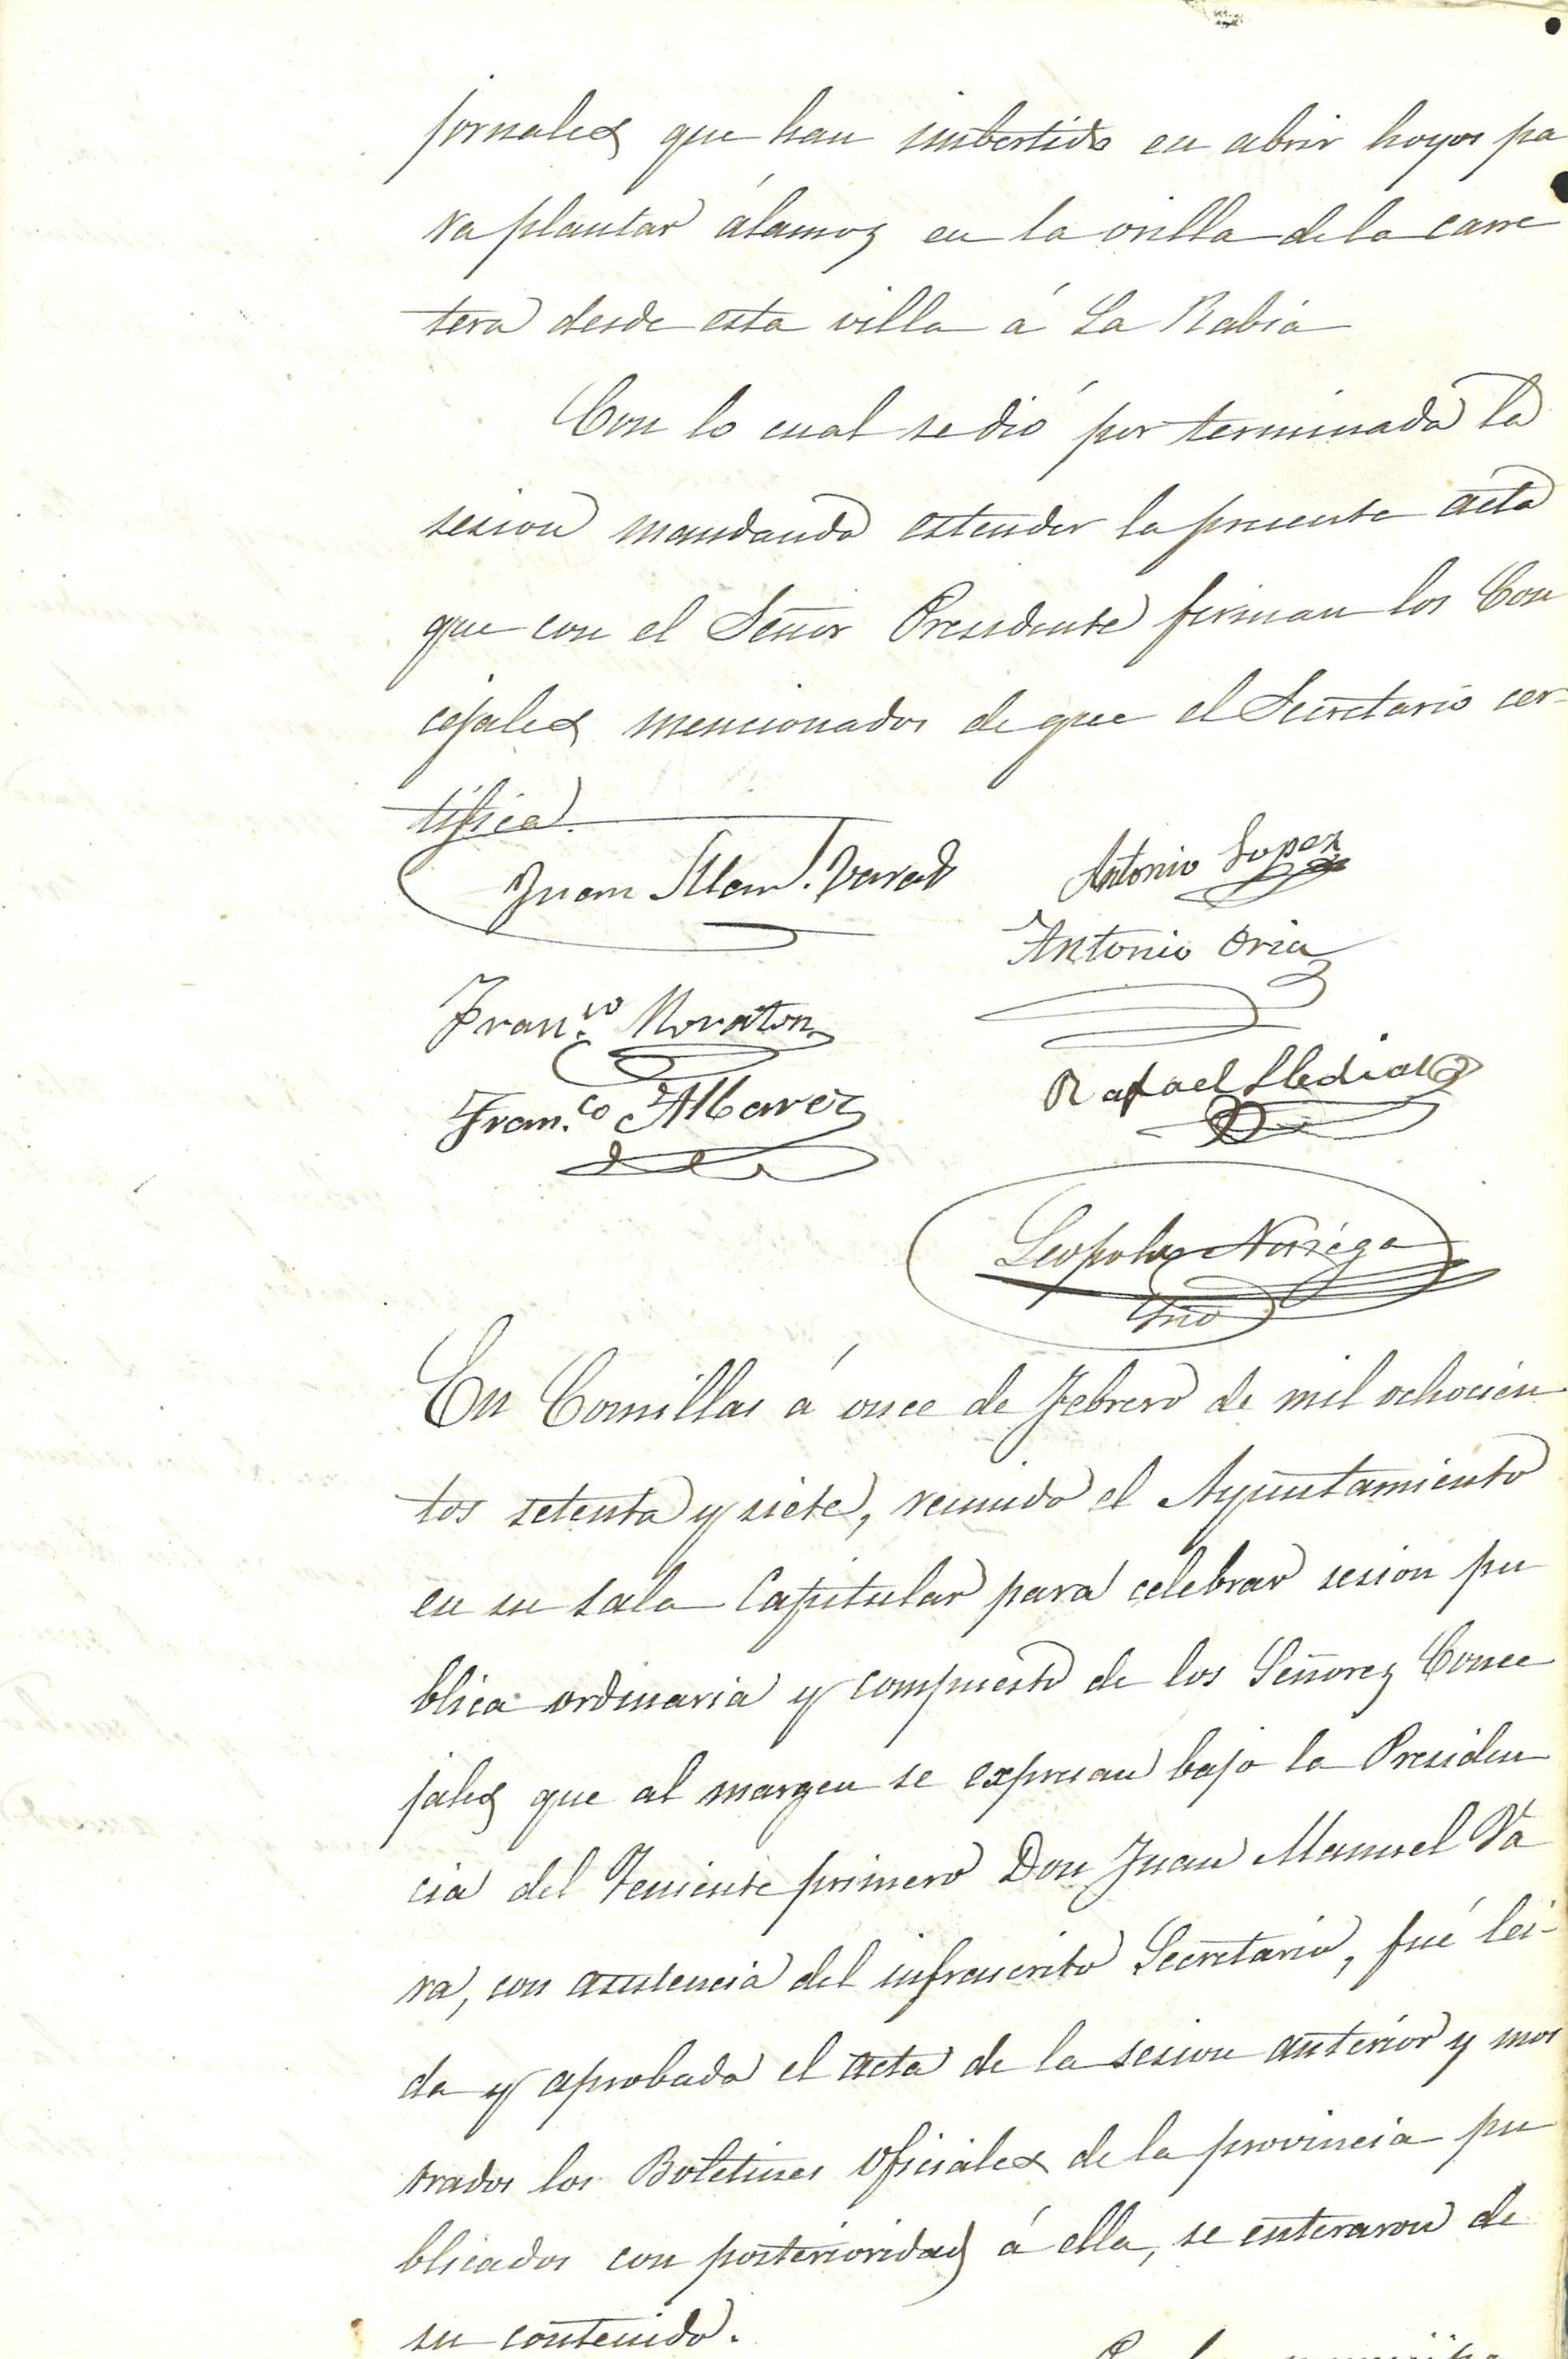 jornales que han imbertido en abrir hoyos pa
ra plantar álamos en la orilla de la carre
tera desde esta villa á La Rabia
Con lo cual se dió por terminada la
sesion mandando estender la presente acta
que con el Señor Presidente firman los Con
cejales mencionados de que el Secretario cer-
tifica.
Juan Man. Vara
Antonio Lopez
Antonio Oria
Fran.co Moraton
Rafael
Fran.co Albarez
Leopoldo Noriega
Srio
En Comillas á once de Febrero de mil ochocien
tos setenta y siete, reunido el Ayuntamiento
en su sala Capitular para celebrar sesion pu
blica ordinaria y compuesto de los Señores Conce
jales que al margen se expresan bajo la Presiden
cia del Teniente primero Don Juan Manuel Va
ra, con asistencia del infrascrito Secretario, fué lei-
da y aprobada el acta de la sesion anterior y mos
trados los Boletines oficiales de la provincia pu
blicados con posterioridad á ella, se enteraron de
su contenido.